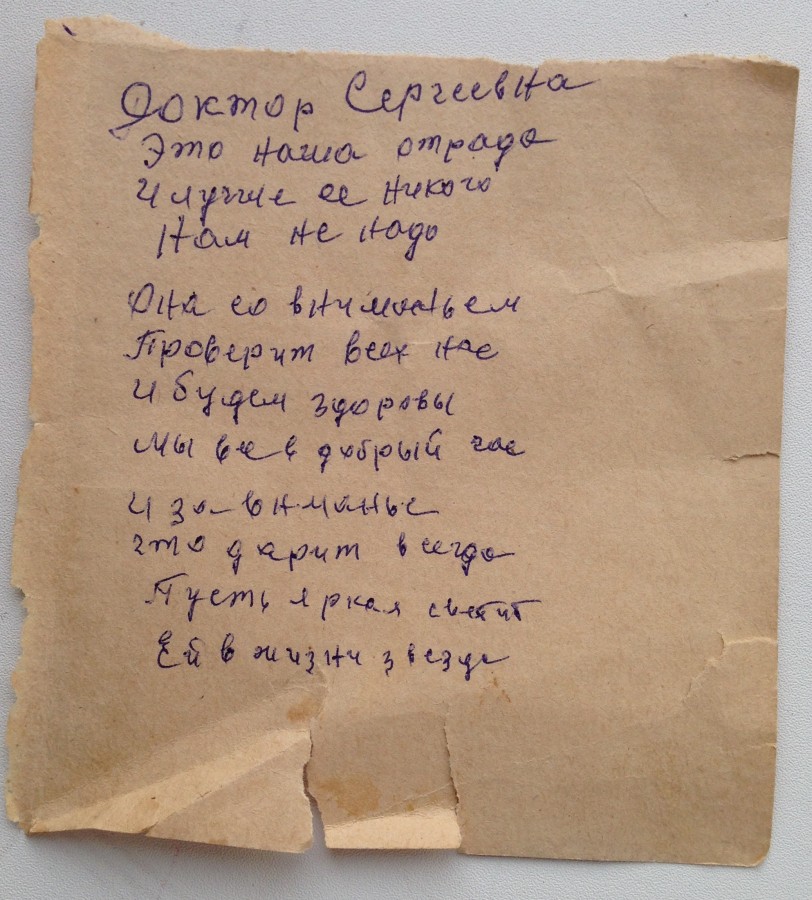 Доктор Сергеевна
Это наша отрада
И лучше ее никого
Нам не надо
Она со вниманьем
Проверит всех нас
И будем здоровы
Мы все в добрый час
И за вниманье
что дарит всегда
Пусть яркая светит
Ей в жизни звезда